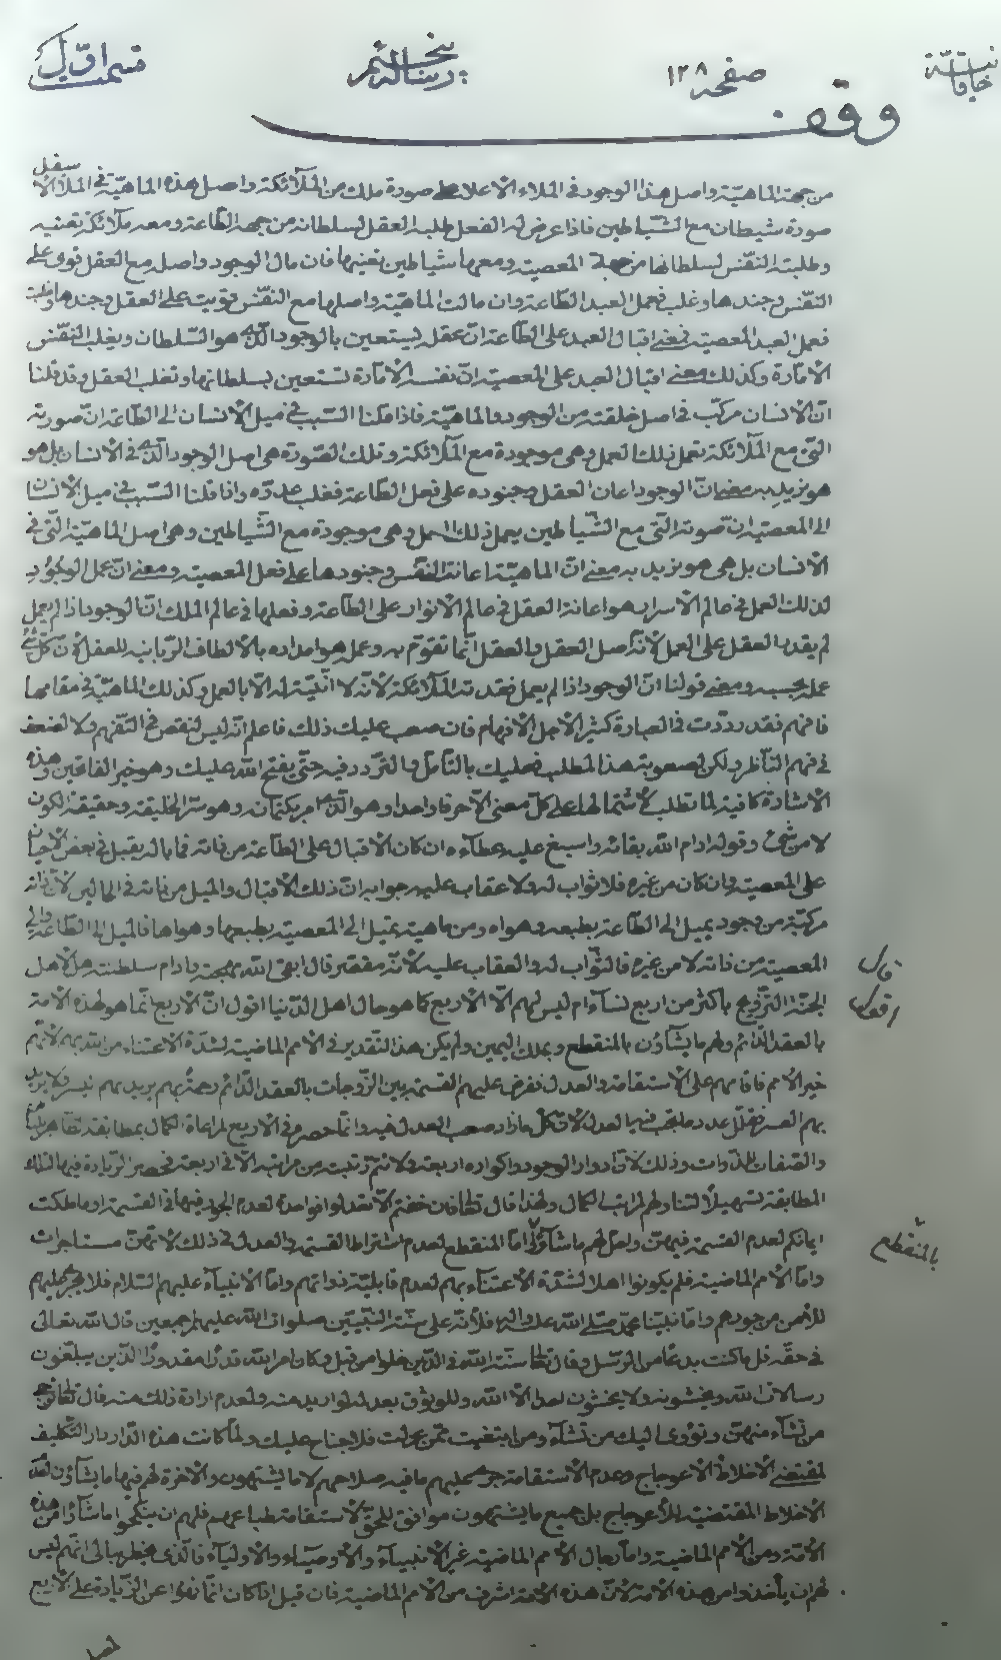 قسمت اول
رسالة پنجم
صفحه ١٢٨
خاقانية
وقف
من جهة الماهيّة واصل هذا الوجود في الملاء الاعلا على صورة ملك من الملآئكة واصل هذه الماهيّة في الملأ الاسفل
صورة شيطان مع الشّياطين فاذا عرض له الفعل طلبه العقل لسلطانه من جهة الطّاعة ومعه ملآئكة تعينه
وطلبته النّفس لسلطانها من جهة المعصية ومعها شياطين تعينها فان مال الوجود واصله مع العقل قوى على
النّفس وجندها وغلب فعمل العبد الطّاعة وان مالت الماهيّة واصلها مع النّفس قويت على العقل وجندها وغلبت
فعمل العبد المعصية فمعنى اقبال العبد على الطّاعة انّ عقله يستعين بالوجود الّذي هو السّلطان ويغلب النّفس
الامّارة وكذلك معنى اقبال العبد على المعصية انّ نفسه الامّارة تستعين بسلطانها وتغلب العقل وقد قلنا
انّ الانسان مركّب في اصل خلقته من الوجود والماهيّة فاذا قلنا السّبب في ميل الانسان الى الطّاعة انّ صورته
الّتي مع الملآئكة تعمل ذلك العمل وهي موجودة مع الملآئكة وتلك الصّورة هي اصل الوجود الّذي في الانسان بل هو
هو نريد به معنى انّ الوجود اعان العقل وجنوده على فعل الطّاعة فغلب عدوّه واذا قلنا السّبب في ميل الانسان
الى المعصية انّ صورته الّتي مع الشّياطين يعمل ذلك العمل وهي موجودة مع الشّياطين وهي اصل الماهيّة الّتي في
الانسان بل هي هو نريد به معنى انّ الماهيّة اعانت النّفس وجنودها على فعل المعصية ومعنى انّ عمل الوجود
لذلك العمل في عالم الاسرار هو اعانة العقل في عالم الانوار على الطّاعة وفعلها في عالم الملك انّ الوجود اذا لم يعمل
لم يقدر العقل على العمل لانّه اصل العقل والعقل انّما تقوّم به وعمله هو امداده بالالطاف الرّبانيه للعقل لانّ كلّ شئ
عمله بحسبه ومعنى قولنا انّ الوجود اذا لم يعمل فقدته الملآئكة لانّه لا انّيّة له الّا بالعمل وكذلك الماهيّة في مقامها
فافهم فقد ردّدت في العبارة كثيرا لاجل الافهام فان صعب عليك ذلك فاعلم انّه ليس لنقص في التفهيم ولا لضعف
في فهم النّاظر ولكن لصعوبة هذا المطلب فعليك بالتّأمّل والتّردّد فيه حتّى يفتح اللّه عليك وهو خير الفاتحين وهذه
الاشارة كافية لما تطلب لاشتمالها على كلّ معنى الّا حرفا واحدا وهو الّذي امر بكتمانه وهو سرّ الخليقة وحقيقة الكون
لا من شئ وقوله ادام اللّه بقائه واسبغ عليه عطآءه ان كان الاقبال على الطّاعة من ذاته فما باله يقبل في بعض الاحيان
على المعصية وان كان من غيره فلا ثواب له ولا عقاب عليه جوابه انّ ذلك الاقبال والميل من ذاته في الحالين لانّ ذاته
مركّبة من وجود يميل الى الطّاعة بطبعه وهواه ومن ماهية تميل الى المعصية بطبعها وهواها فالميل الى الطّاعة والى
المعصية من ذاته لا من غيره فالثّواب له والعقاب عليه لانّه مقتضاه قال ابقى اللّه مهجته وادام سلطنته هل لاهل
الجنّة التّزويج باكثر من اربع نسآء ام ليس لهم الّا الاربع كما هو حال اهل الدّنيا اقول انّ الاربع انّما هو لهذه الامّة
بالعقد الدّائم ولهم ما يشآؤن بالمنقطع وبملك اليمين ولم يكن هذا التّقدير في الامم الماضية لشدّة الاعتناء من اللّه بهم لانّهم
خير الامم فاقامهم على الاستقامة والعدل ففرض عليهم القسمة بين الزّوجات بالعقد الدّائم رحمة بهم يريد بهم اليسر ولا يريد
بهم العسر فقلّل عدد ما يجب فيه العدل لانّ كلّ ما زاد صعب العدل فيه وانّما حصره في الاربع لمراعاة الكمال بمطابقة الظّاهر للباطن
والصّفات للذّوات وذلك لانّ ادوار الوجود واكواره اربعة فلا تتمّ رتبة من مراتبه الّا في اربعة فحصر الزّيادة فيها لتلك
المطابقة تسهيلا لتناولهم لمراتب الكمال ولهذا قال تعالى فان خفتم الّا تعدلوا فواحدة لعدم الجور فيها في القسمة او ما ملكت
ايمانكم لعدم القسمة فيهنّ واحلّ لهم ما شآؤا امّا المنقطع لعدم اشتراط القسمة والعدل في ذلك لانّهنّ مستاجرات
وامّا الامم الماضية فلم يكونوا اهلا لشدّة الاعتناء بهم لعدم قابليّة ذواتهم وامّا الانبيآء عليهم السّلام فلا حجر عليهم
للأمن من جورهم وامّا نبيّنا محمّد صلّى اللّه عليه واله فلأنّه على سنّة النّبيّين صلوات اللّه عليهم اجمعين قال اللّه تعالى
في حقّه قل ما كنت بدعا من الرّسل وقال تعالى سنّة اللّه في الّذين خلوا من قبل وكان امر اللّه قدرا مقدورا الّذين يبلّغون
رسالات اللّه ويخشونه ولا يخشون احدا الّا اللّه وللوثوق بعدله لو اريد منه ولعدم ارادة ذلك منه قال تعالى ترجى
من تشآء منهنّ وتؤوى اليك من تشآء ومن ابتغيت ممّن عزلت فلا جناح عليك ولمّا كانت هذه الدّار دار التّكليف
لمقتضى الاخلاط الاعوجاج وعدم الاستقامة جرى عليهم ما فيه صلاحهم لا ما يشتهون والاخرة لهم فيها ما يشآؤن لعدم
الاخلاط المقتضية للاعوجاج بل جميع ما يشتهون موافق للحقّ لاستقامة طباعهم فلهم ان ينكحوا ما شآؤا من هذه
الامّة ومن الامم الماضية وامّا رجال الامم الماضية غير الانبيآء والاوصيآء والاوليآء فالّذى يخطر ببالى انّهم ليس
لهم ان يأخذوا من هذه الامّة لانّ هذه الامّة اشرف من الامم الماضية فان قيل اذا كان انّما نهوا عن الزّيادة على الاربع
قال
اقول
بالمنقطع